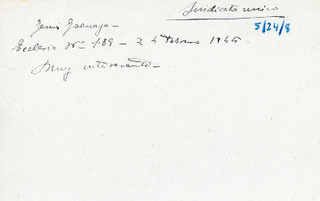 Sindicato unico
5/24/8
Jesús
Ecclesia Nº 189 - 24 Febrero 1945.
Muy interesante -